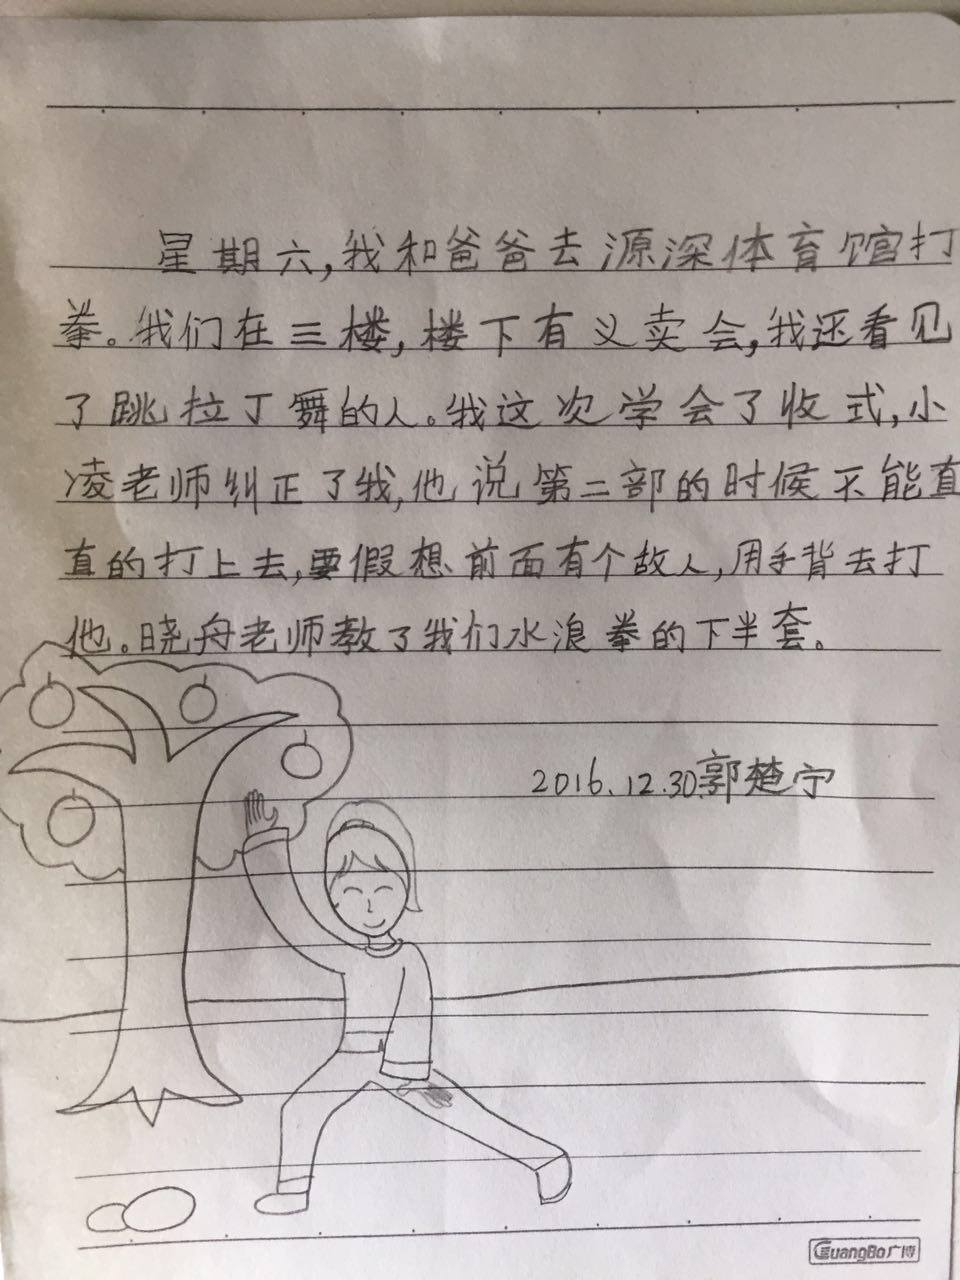 星期六,我和爸爸去源深体育馆打
拳。我们在三楼,楼下有义卖会,我还看见
了跳拉丁舞的人。我这次学会了收式,小
凌老师纠正了我,他说第二部的时候不能直
直的打上去,要假想前面有个故人,用手背去打
他。晓舟老师教了我们水浪拳的下半套。
2016.12.30.郭楚宁
GuangBo广博